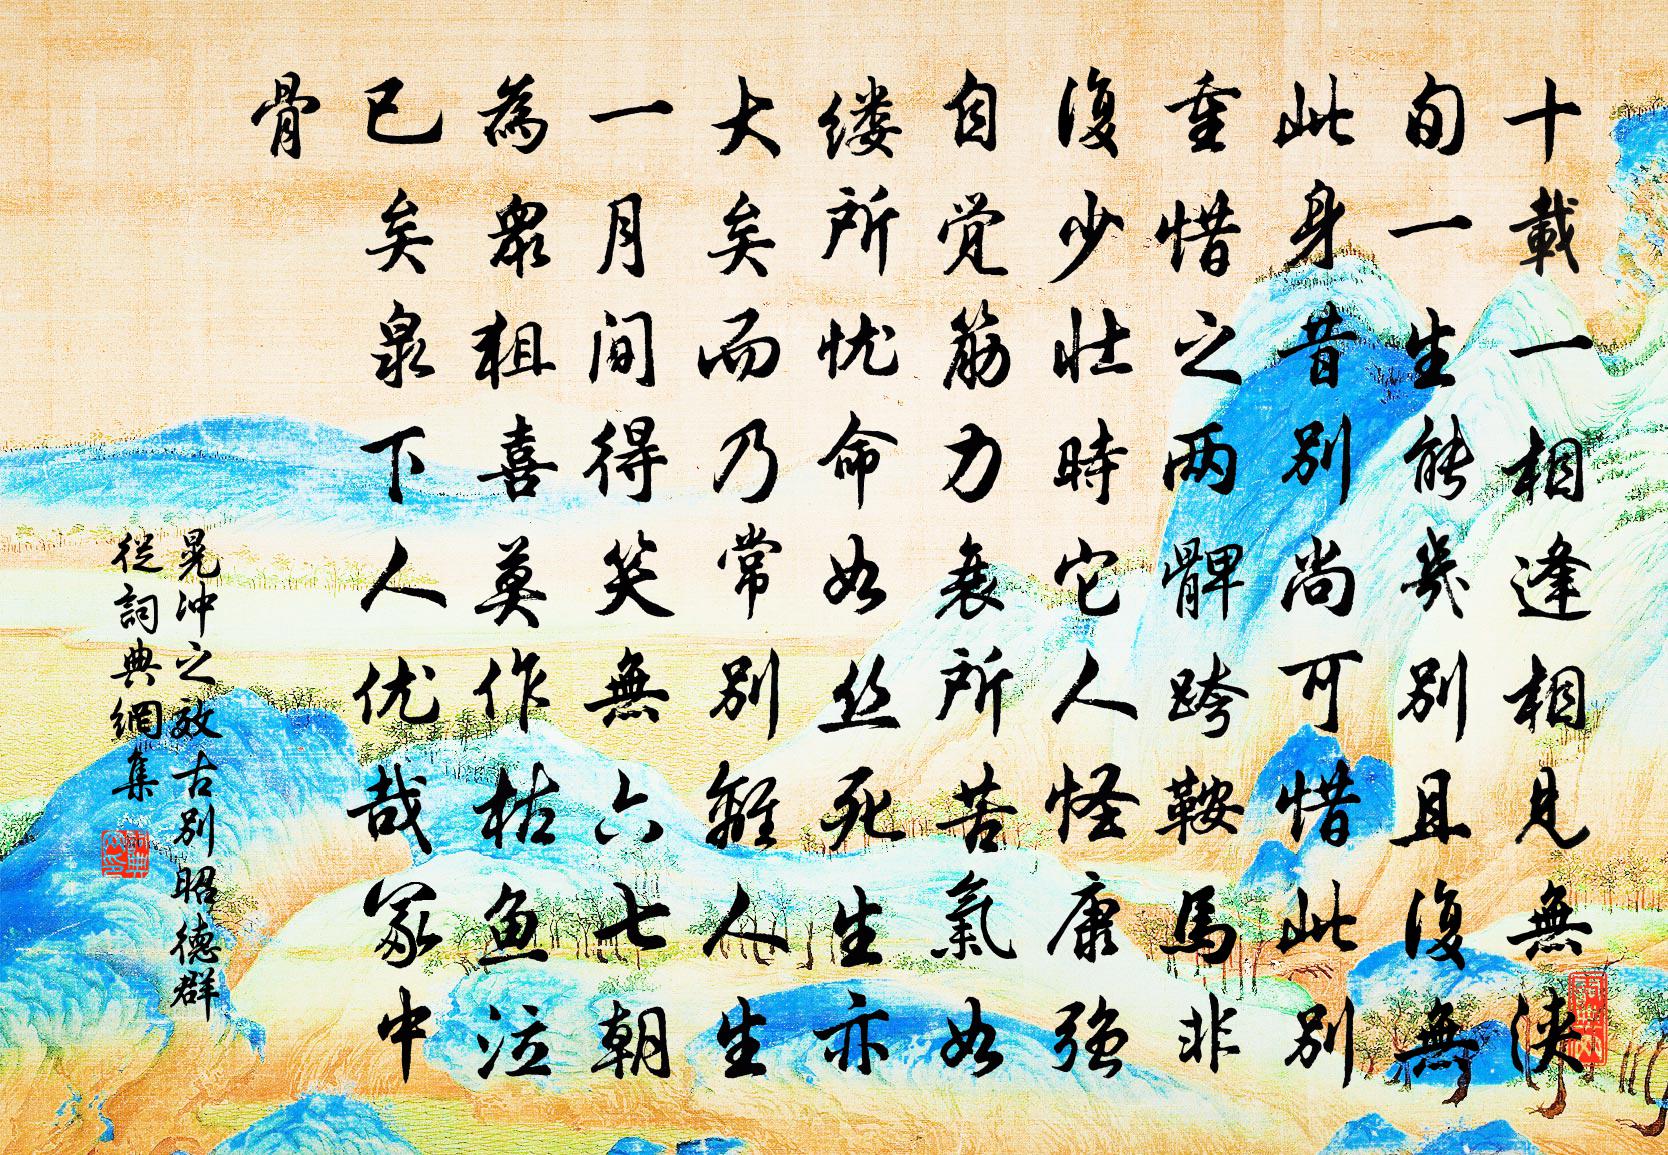 十載一相逢相見無浹
旬一生能幾別且復無
此身昔別尚可惜此別
重惜之两髀跨鞍馬非
復少壯時它人怪康強
自觉筋力衰所苦氣如
缕所忧命如丝死生亦
大矣而乃常别離人生
一月间得笑無六七朝
為眾狙喜莫作枯魚泣
已矣泉下人优哉冢中
骨
晁沖之效古別昭德群
從詞典網集